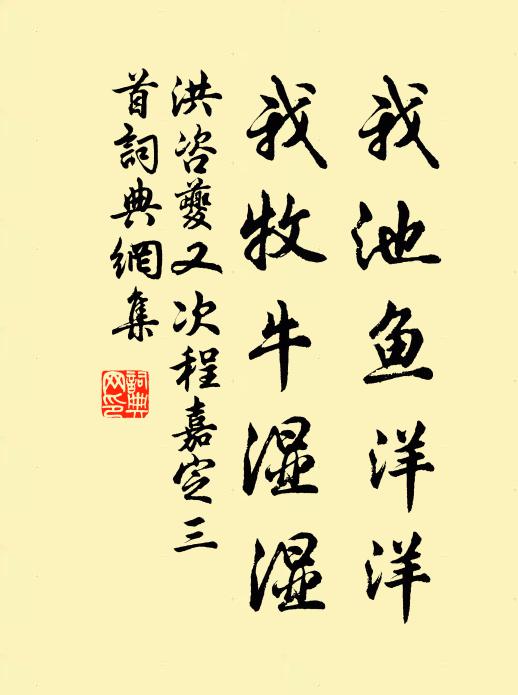 我池鱼洋洋
我牧牛湿湿
洪咨夔又次程嘉定三
首詞典網集
詞典
网印